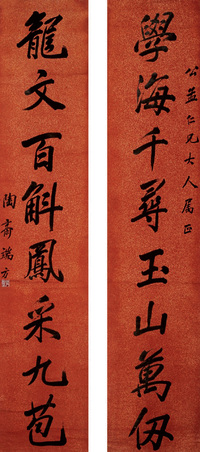 公孟仁兄大人属正
學海千尋玉山萬仞
龍文百斛鳳采九苞
陶齋端方